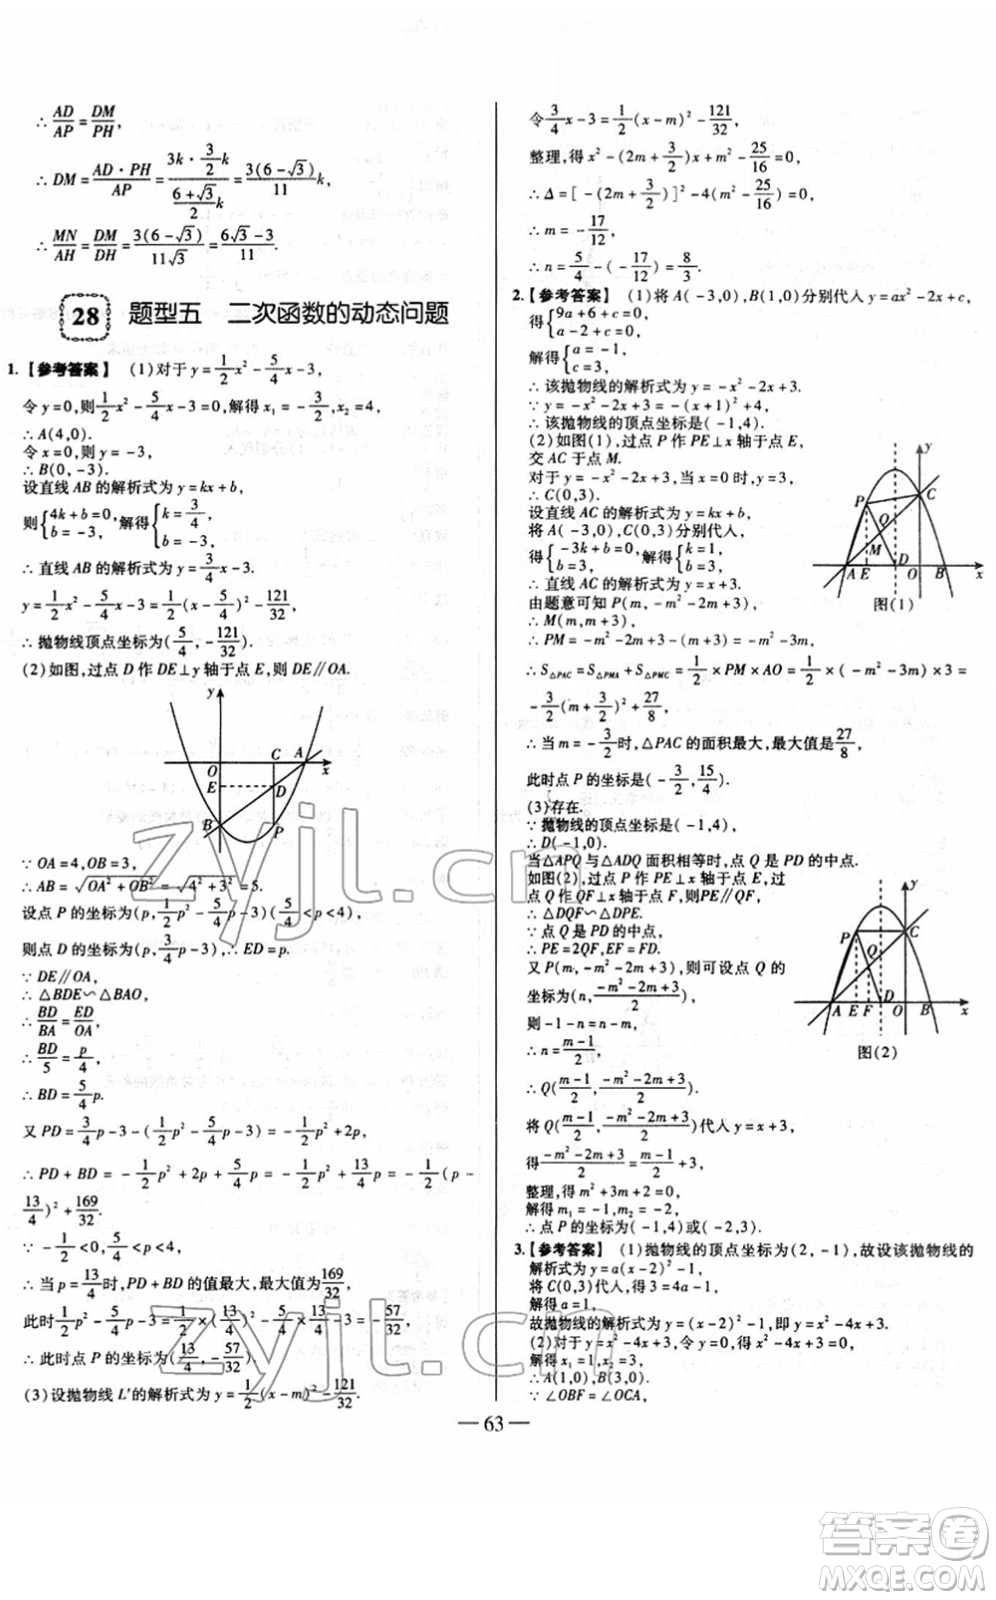 ∴ AD/AP = DM/PH,
∴ DM = AD·PH/AP = (3k·(3/2)k)/((6+√3)/2 k) = 3(6-√3)/11 k,
∴ MN/AH = DM/DH = 3(6-√3)/11√3 = (6√3-3)/11.
28 题型五 二次函数的动态问题
1.【参考答案】 (1)对于 y = 1/2 x² - 5/4 x - 3,
令 y=0,则 1/2 x² - 5/4 x - 3 = 0,解得 x₁ = -3/2, x₂ = 4,
∴ A(4,0).
令 x=0,则 y=-3,
∴ B(0,-3).
设直线 AB 的解析式为 y=kx+b,
则{4k+b=0, b=-3, 解得{k=3/4, b=-3,
∴ 直线 AB 的解析式为 y = 3/4 x - 3.
y = 1/2 x² - 5/4 x - 3 = 1/2 (x - 5/4)² - 121/32,
∴ 抛物线顶点坐标为(5/4, -121/32).
(2)如图,过点 D 作 DE⊥y 轴于点 E,则 DE∥OA.
y
O C A x
E D
B P
∵ OA=4,OB=3,
∴ AB = √(OA²+OB²) = √(4²+3²) = 5.
设点 P 的坐标为(p, 1/2 p² - 5/4 p - 3)(5/4 < p < 4),
则点 D 的坐标为(p, 3/4 p - 3),∴ ED=p.
∵ DE∥OA,
∴ △BDE∽△BAO,
∴ BD/BA = ED/OA,
∴ BD/5 = p/4,
∴ BD = 5/4 p.
又 PD = 3/4 p - 3 - (1/2 p² - 5/4 p - 3) = -1/2 p² + 2p,
∴ PD+BD = -1/2 p² + 2p + 5/4 p = -1/2 p² + 13/4 p = -1/2 (p -
13/4)² + 169/32.
∵ -1/2 < 0, 5/4 < p < 4,
∴ 当 p = 13/4 时,PD+BD 的值最大,最大值为 169/32,
此时 1/2 p² - 5/4 p - 3 = 1/2 × (13/4)² - 5/4 × 13/4 - 3 = -57/32,
∴ 此时点 P 的坐标为(13/4, -57/32).
(3)设抛物线 L′的解析式为 y = 1/2 (x-m)² - 121/32,
令 3/4 x - 3 = 1/2 (x-m)² - 121/32,
整理,得 x² - (2m + 3/2)x + m² - 25/16 = 0,
∴ Δ = [-(2m + 3/2)]² - 4(m² - 25/16) = 0,
∴ m = -17/12,
∴ n = 5/4 - (-17/12) = 8/3.
2.【参考答案】 (1)将 A(-3,0),B(1,0)分别代入 y=ax²-2x+c,
得{9a+6+c=0, a-2+c=0,
解得{a=-1, c=3,
∴ 该抛物线的解析式为 y=-x²-2x+3.
∵ y=-x²-2x+3=-(x+1)²+4,
∴ 该抛物线的顶点坐标为(-1,4).
(2)如图(1),过点 P 作 PE⊥x 轴于点 E,
交 AC 于点 M.
对于 y=-x²-2x+3,当 x=0 时,y=3,
∴ C(0,3).
设直线 AC 的解析式为 y=kx+b,
将 A(-3,0),C(0,3)分别代入,
得{-3k+b=0, b=3, 解得{k=1, b=3,
∴ 直线 AC 的解析式为 y=x+3.
由题意可知 P(m,-m²-2m+3),
∴ M(m,m+3),
∴ PM=-m²-2m+3-(m+3)=-m²-3m,
∴ S△PAC = S△PMA + S△PMC = 1/2 × PM × AO = 1/2 × (-m²-3m) × 3 =
-3/2 (m + 3/2)² + 27/8,
∴ 当 m = -3/2 时,△PAC 的面积最大,最大值是 27/8,
此时点 P 的坐标是(-3/2, 15/4).
(3)存在.
∵ 抛物线的顶点坐标是(-1,4),
∴ D(-1,0).
当△APQ 与△ADQ 面积相等时,点 Q 是 PD 的中点.
如图(2),过点 P 作 PE⊥x 轴于点 E,过
点 Q 作 QF⊥x 轴于点 F,则PE∥QF,
∴ △DQF∽△DPE.
∵ 点 Q 是 PD 的中点,
∴ PE=2QF,EF=FD.
又 P(m,-m²-2m+3),则可设点 Q 的
坐标为(n, (-m²-2m+3)/2),
则 -1-n=n-m,
∴ n = (m-1)/2,
∴ Q((m-1)/2, (-m²-2m+3)/2).
将 Q((m-1)/2, (-m²-2m+3)/2)代入 y=x+3,
得 (-m²-2m+3)/2 = (m-1)/2 + 3,
整理,得 m²+3m+2=0,
解得 m₁=-1,m₂=-2,
∴ 点 P 的坐标为(-1,4)或(-2,3).
y
P C
Q
M
A E D O B x
图(1)
y
P C
Q
A E F D O B x
图(2)
3.【参考答案】 (1)抛物线的顶点坐标为(2,-1),故设该抛物线的
解析式为 y=a(x-2)²-1,
将 C(0,3)代入,得 3=4a-1,
解得 a=1,
故抛物线的解析式为 y=(x-2)²-1,即 y=x²-4x+3.
(2)对于 y=x²-4x+3,令 y=0,得 x²-4x+3=0,
解得 x₁=1,x₂=3,
∴ A(1,0),B(3,0).
∵ ∠OBF=∠OCA,
— 63 —
zyjl.cn
zyjl.cn
答案圈
MXQE.COM